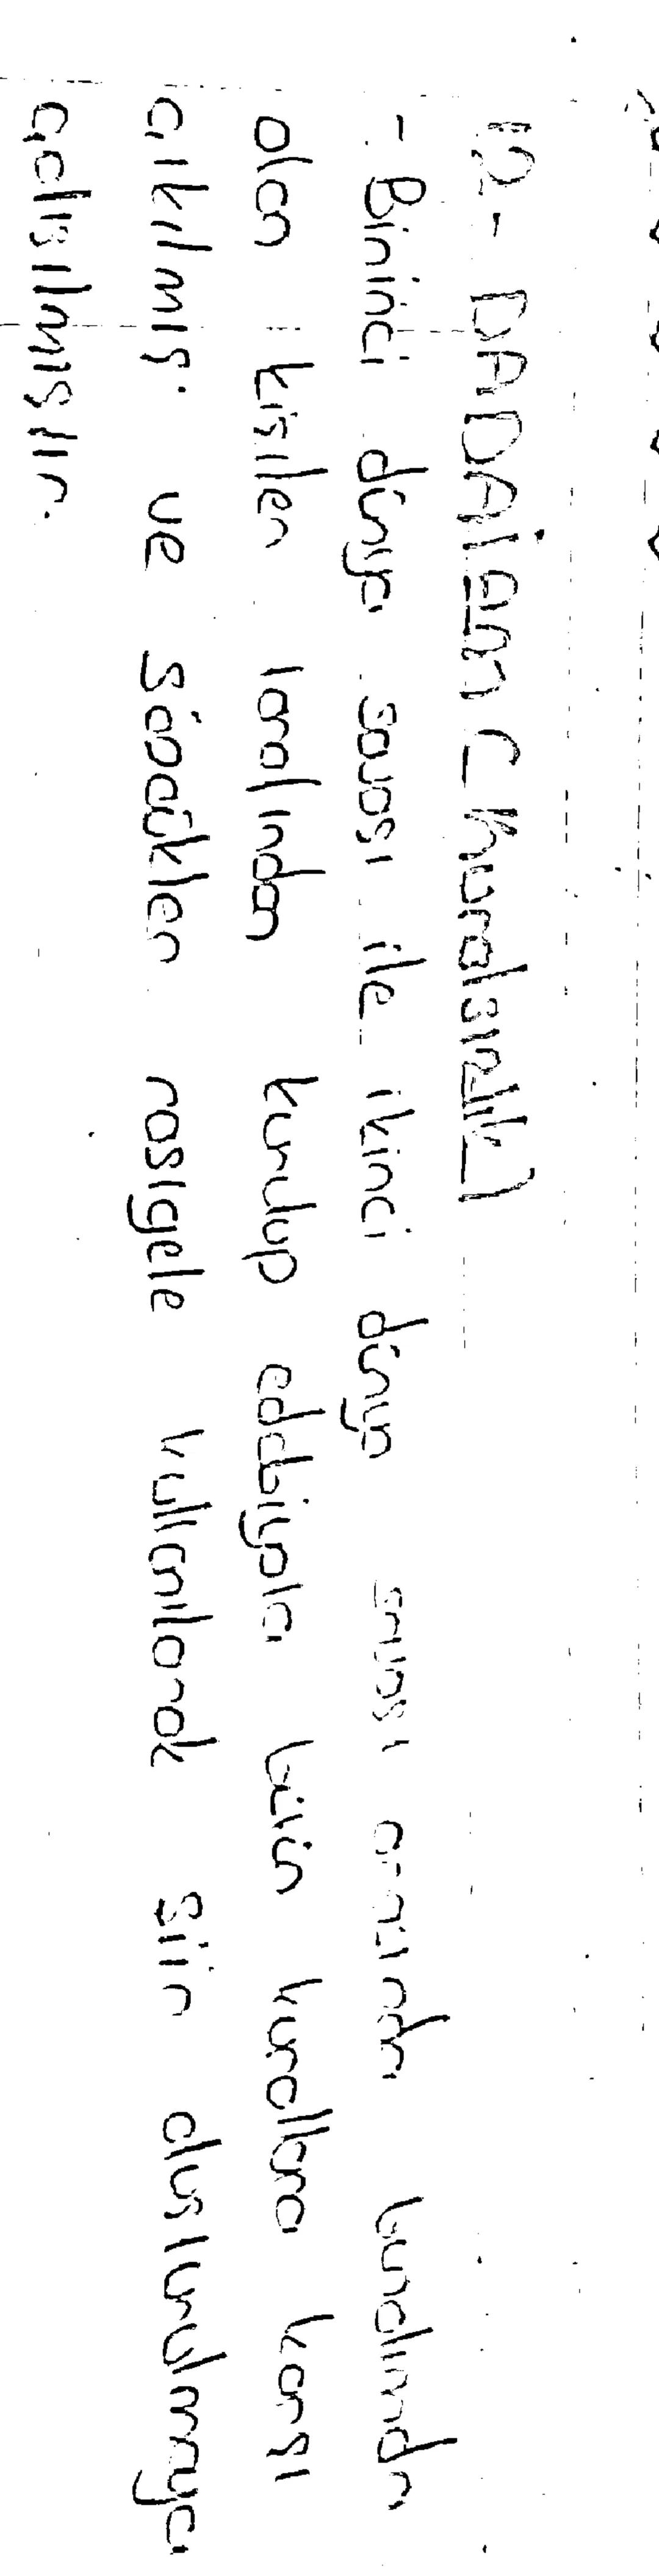 12- DADAİZM (kuralsızlık)
- Birinci dünya savaşı ile ikinci dünya savaşı arasında bunalımda
olan kişiler tarafından kurulup edebiyata bütün kurallara karşı
çıkılmış. ve sözcükler rastgele kullanılarak şiir oluşturulmaya
çalışılmıştır.